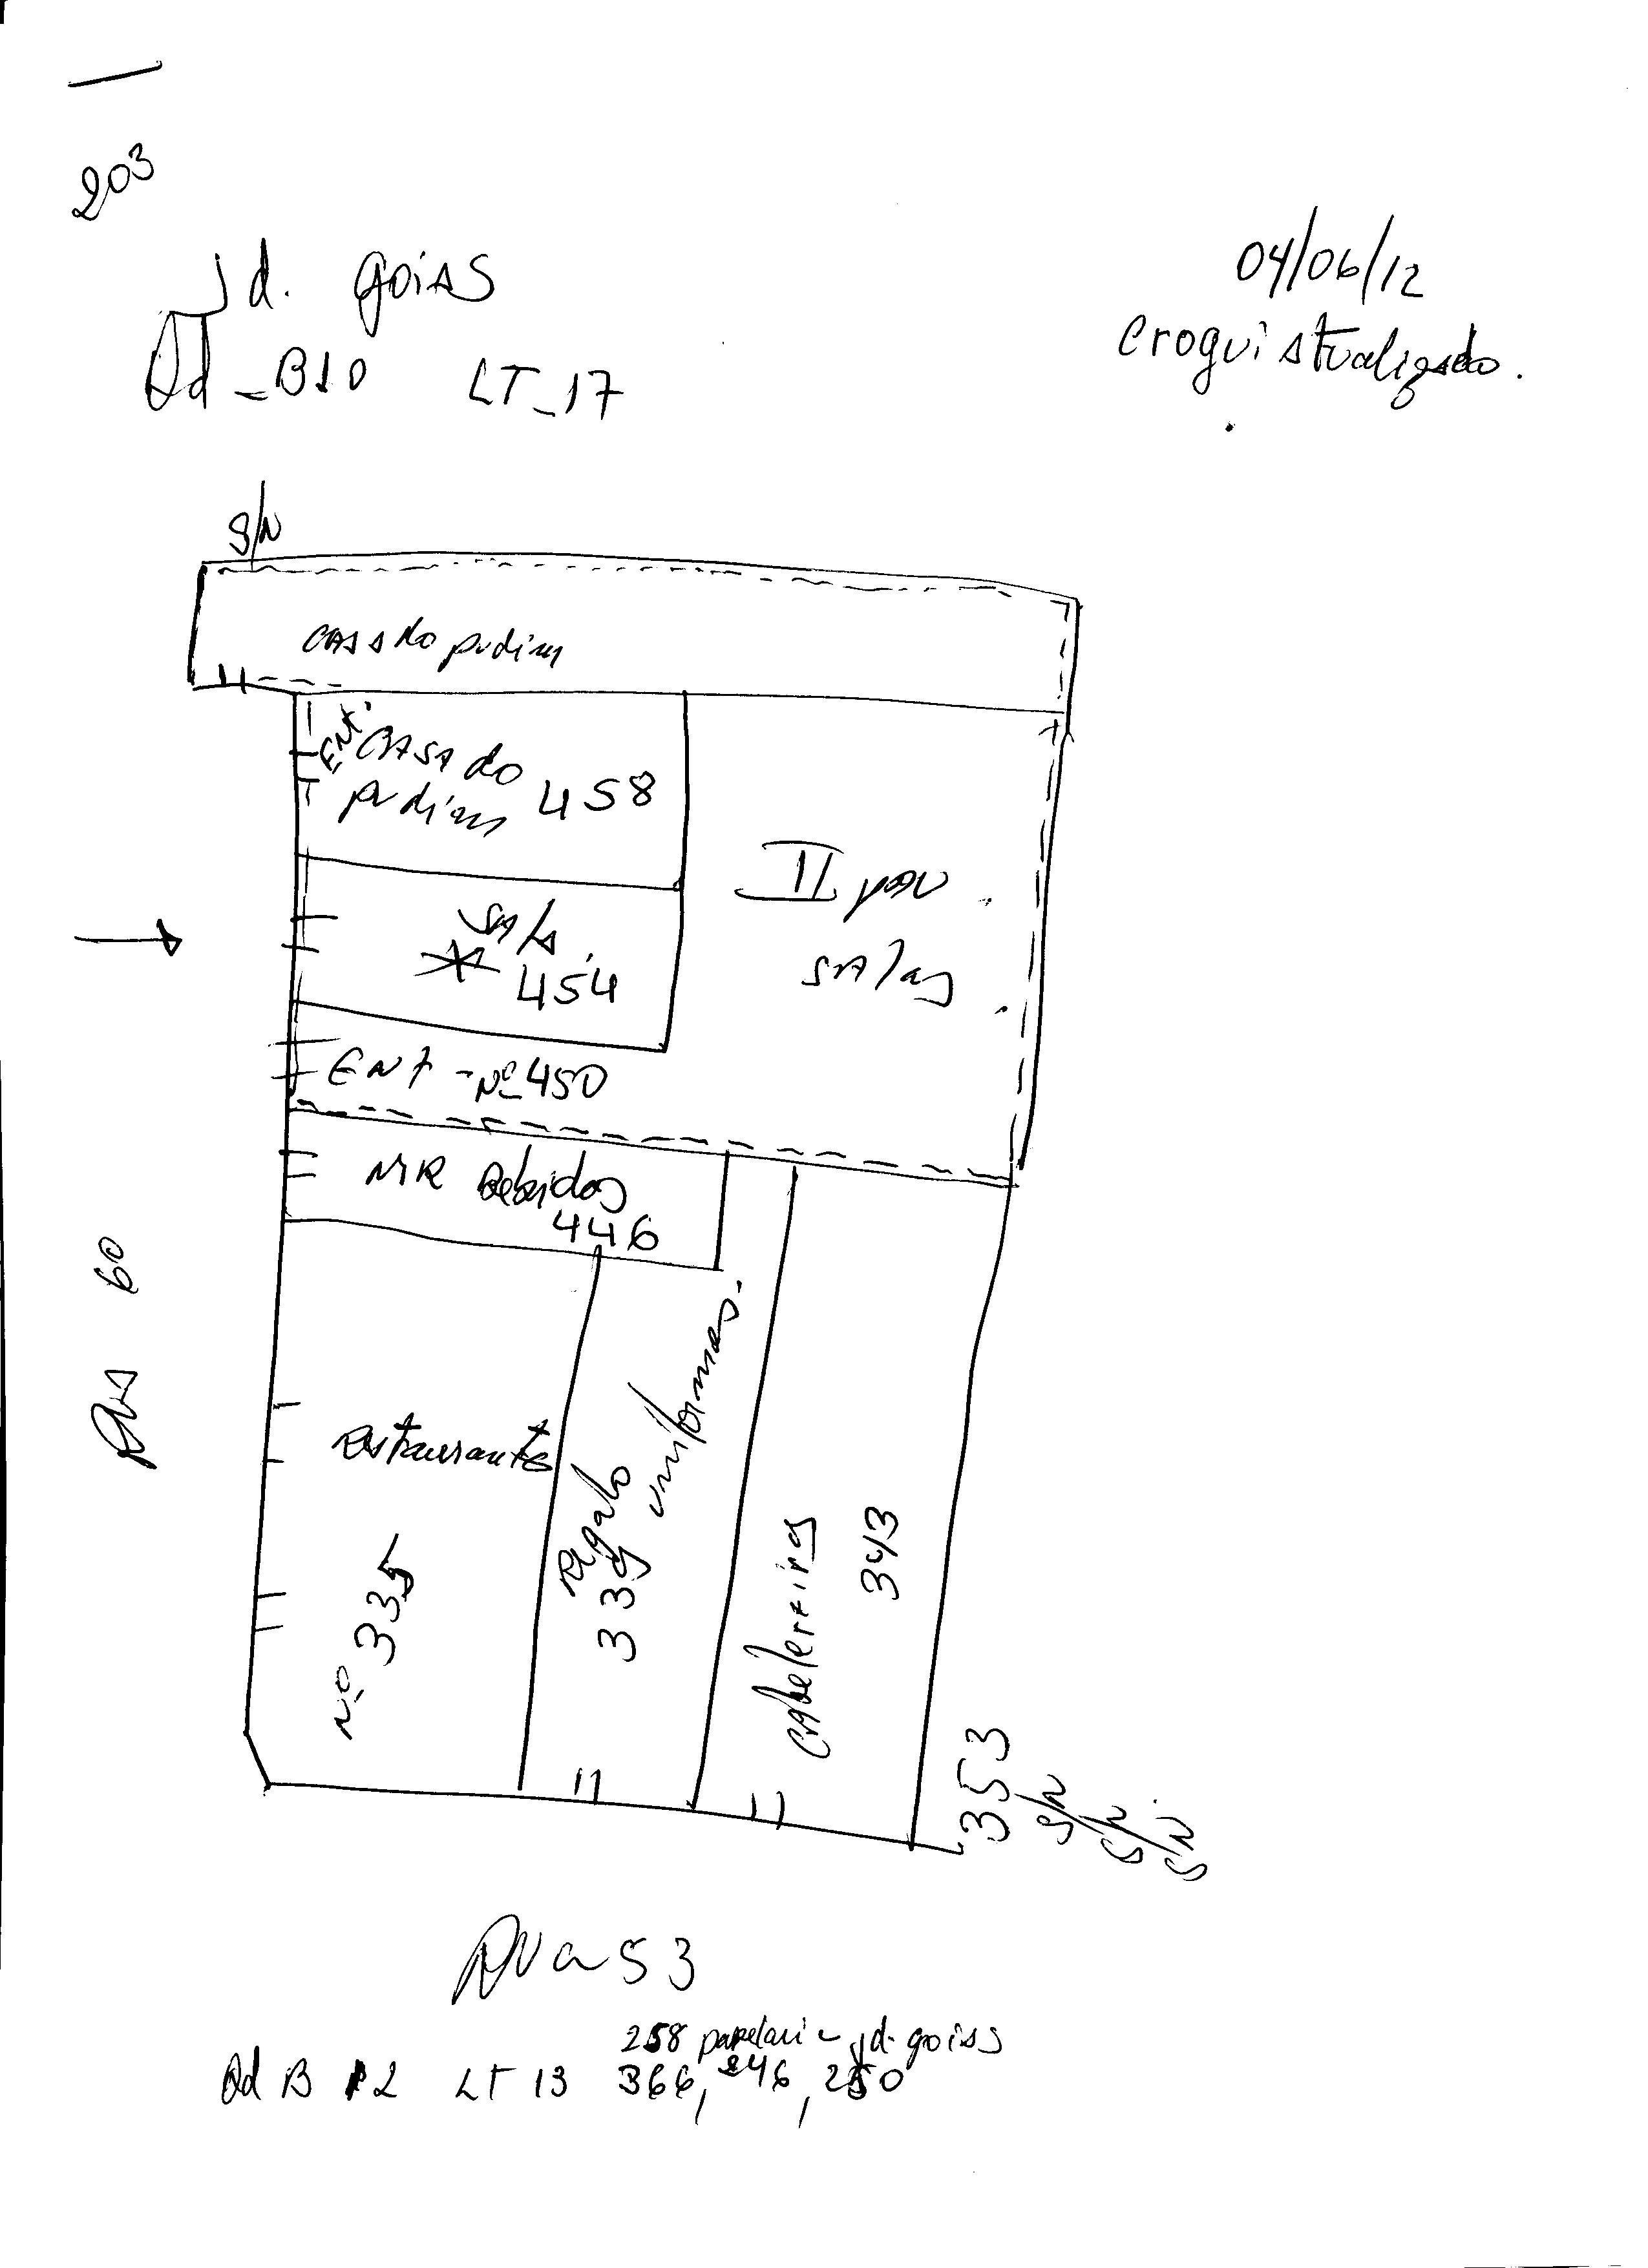 203
Jd. Goiás
Qd - B10 LT - 17
04/06/12
croqui atualizado.
S/N
casa do pudim
ENT.
CASA do
pudim 458
II pav.
salas.
sala
454
ENT - Nº 450
MR Bebidas
446
Rua 60
Restaurante
Nº 335
Regalo
uniformes.
339
cabeleireiros
343
353
S/N
S/N
S/N
Rua 53
258 papelaria jd. goiás
Qd B 12 LT 13 366, 246, 250